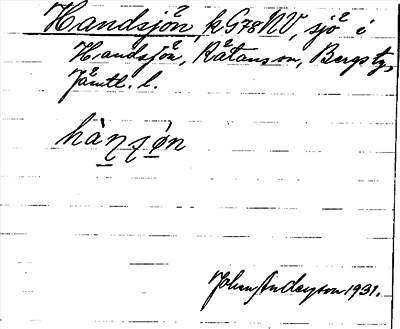 Handsjön, k G78 NV, sjö i
Handsjön, Rätansn, Bergs tg,
Jämtl. l.
hàn̠ʃø̠̀n
John Anderson 1931.